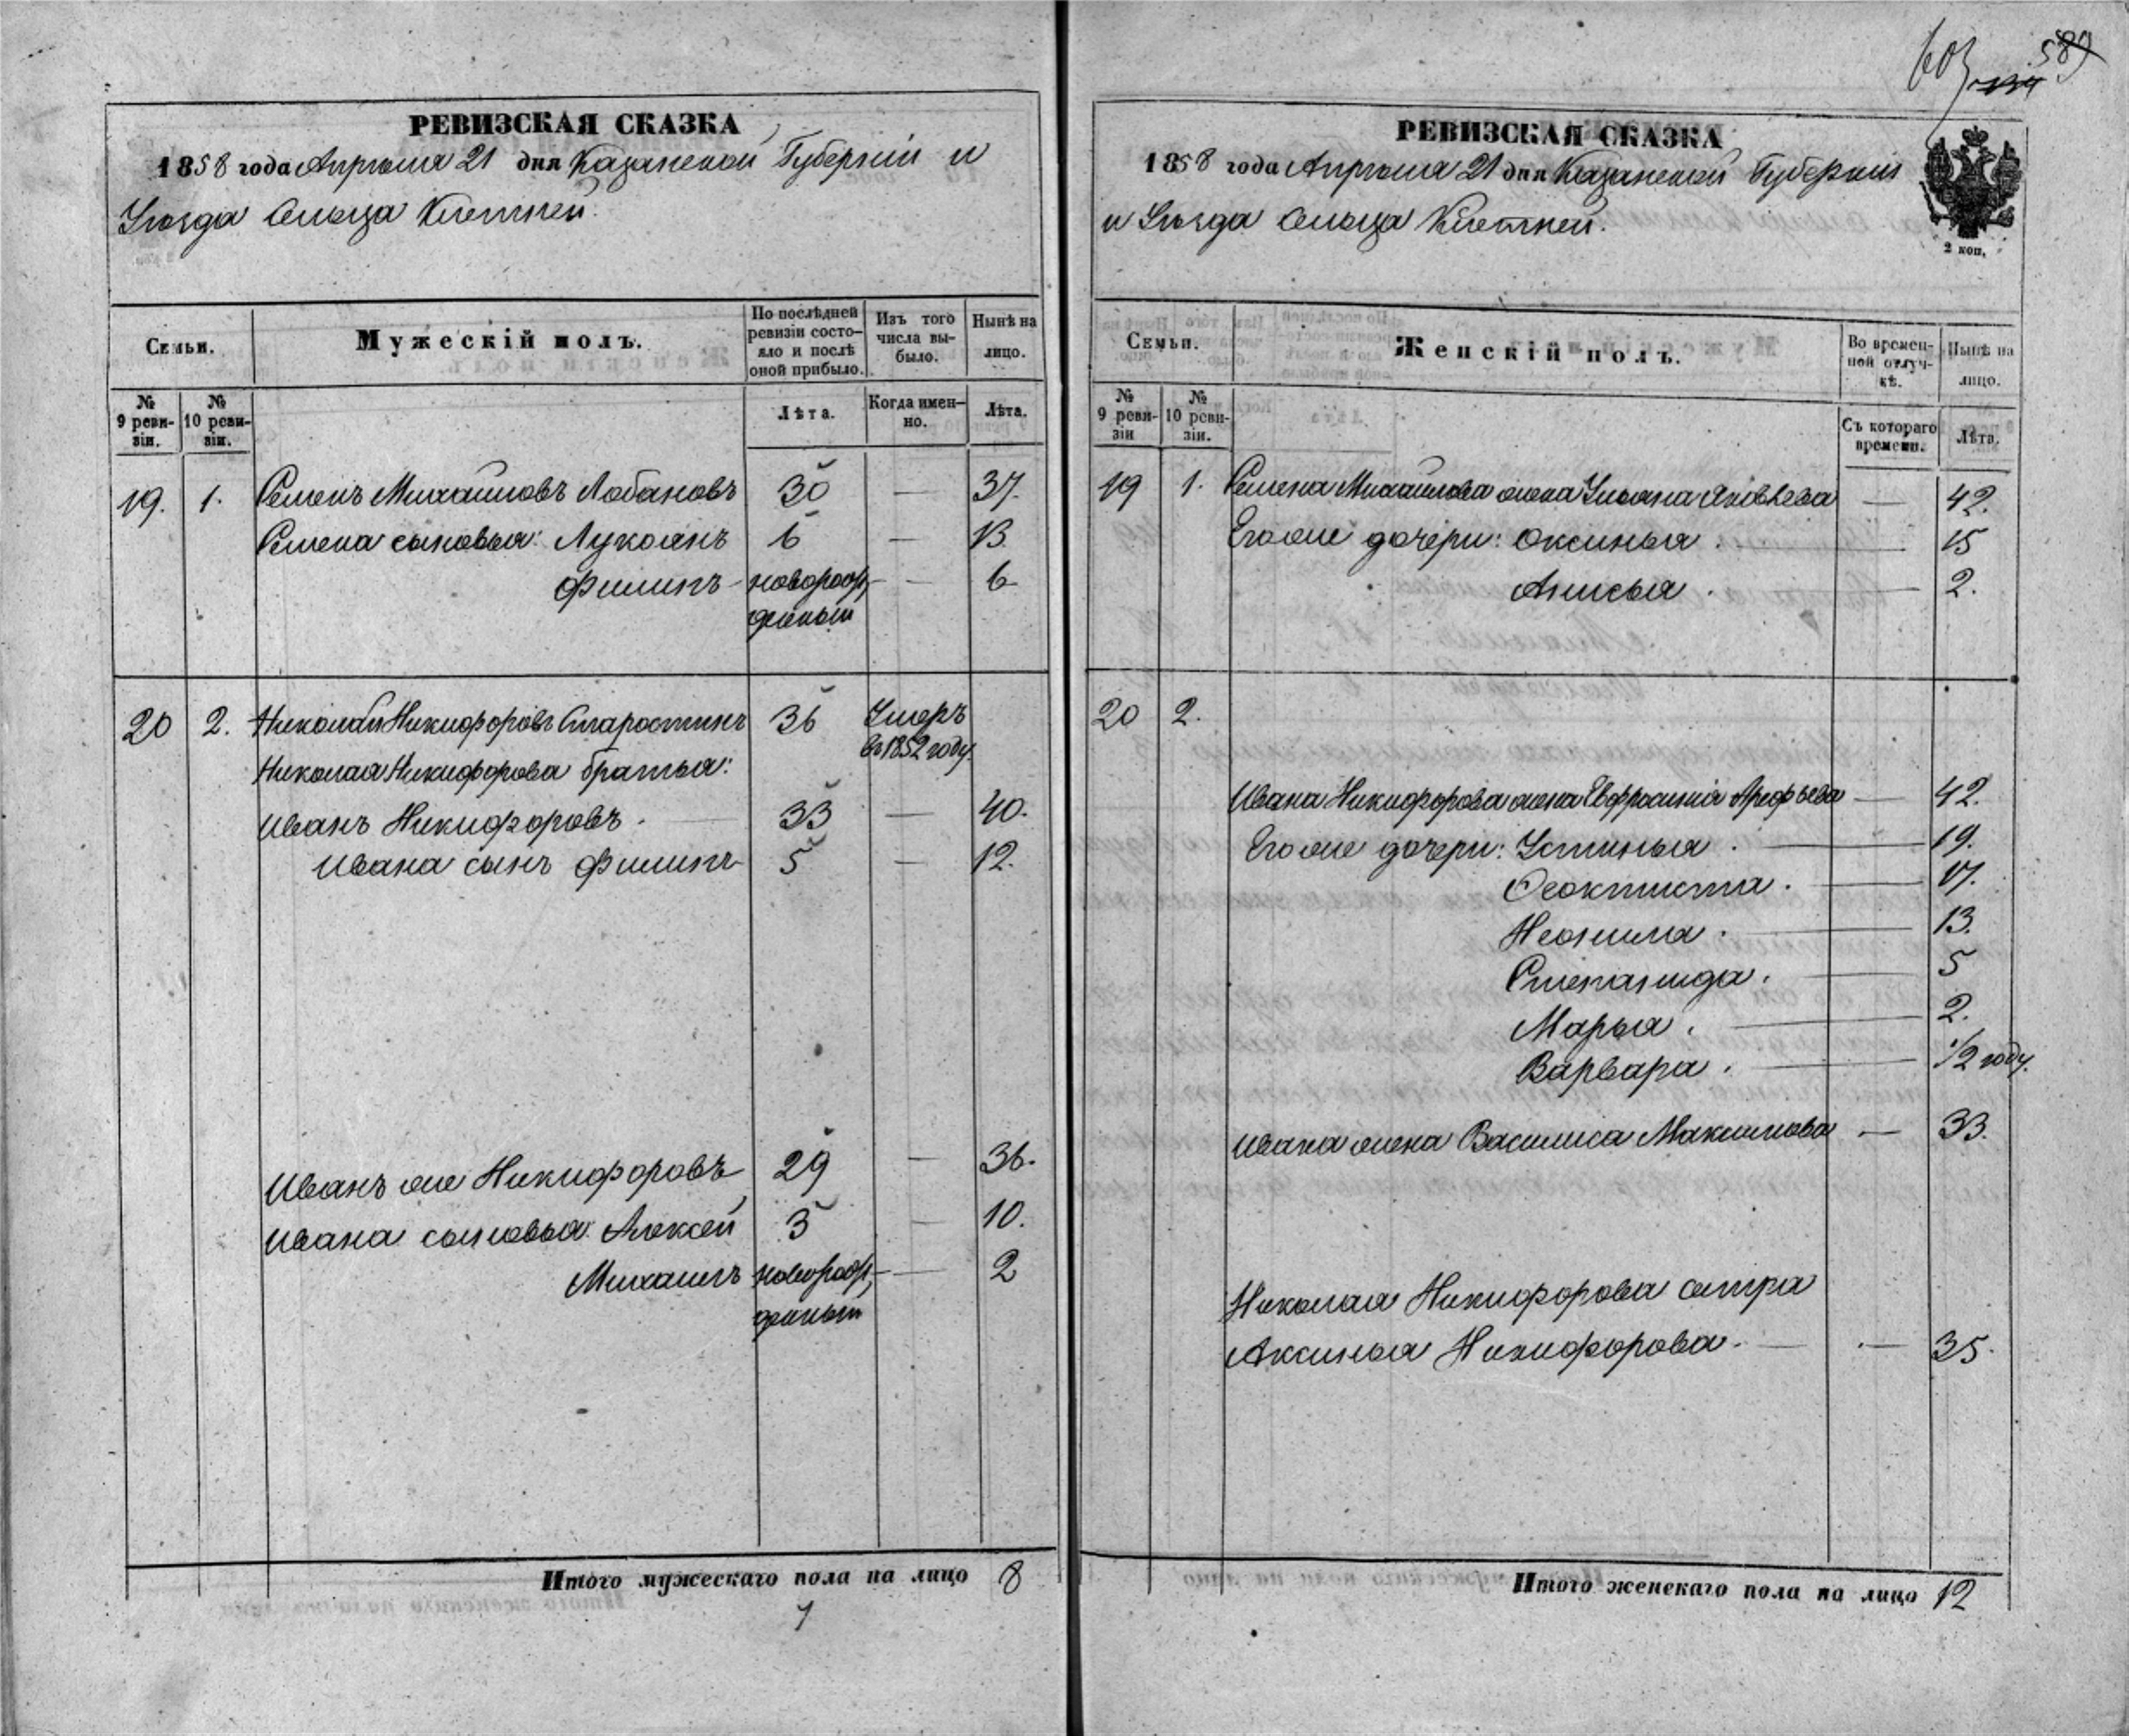 603 589
РЕВИЗСКАЯ СКАЗКА
1858 года Апрѣля 21 дня Казанской Губерніи и
Уѣзда Сельца Клетней.
Семьи.
Мужескій полъ.
По послѣдней ревизіи состояло и послѣ оной прибыло.
Изъ того числа выбыло.
Нынѣ на лицо.
№ 9 ревизіи.
№ 10 ревизіи.
Лѣта.
Когда именно.
Лѣта.
19. 1. Семенъ Михайловъ Лобановъ 30 — 37.
Семена сыновья: Лукоянъ 6 — 13.
Филипъ новорож- — 6
денный
20 2. Николай Никифоровъ Старостинъ 36 Умеръ
въ 1852 году.
Николая Никифорова братья:
Иванъ Никифоровъ. 33 — 40.
Ивана сынъ Филипъ 5 — 12.
Иванъ же Никифоровъ 29 — 36.
Ивана сыновья: Алексей 3 — 10.
Михаилъ новорож- — 2
денный
Итого мужескаго пола на лицо 8
РЕВИЗСКАЯ СКАЗКА
1858 года Апрѣля 21 дня Казанской Губерніи
и Уѣзда Сельца Клетней.
2 коп.
Семьи.
Женскій полъ.
Во временной отлучкѣ.
Нынѣ на лицо.
№ 9 ревизіи
№ 10 ревизіи.
Съ котораго времени.
Лѣта.
19 1. Семена Михайлова жена Ульяна Яковлева — 42.
Его же дочери: Оксинья. — 15
Анисья. — 2.
20 2.
Ивана Никифорова жена Евфросинія Арефьева — 42.
Его же дочери: Устинья. — 19.
Феоктиста. — 17.
Неонила. — 13.
Степанида. — 5
Марья. — 2.
Варвара. — 1/2 году.
Ивана жена Василиса Максимова — 33.
Николая Никифорова сестра
Аксинья Никифорова. — 35.
Итого женскаго пола на лицо 12